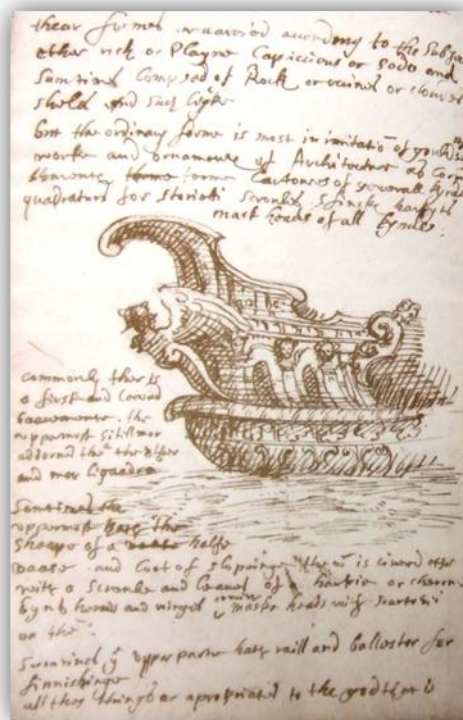 thear formes ar varried according to the Subje
ether rich or Playne Capricious or sodo and
Sumtimes Composed of Rock or ruines or cloudes
shels and such lyke
but the ordinary forme is most in imitatio of
worke and ornaments of Architecture as Corn
forme Cartouses of severall kynds
quadrature for storieti Scroules sfinske harpyes
mask heads of all kyndes.
Commonly ther is
a first and second
basement, the
uppermost is still mor
adorned then the other
and mor
Somtimes the
uppermost hath the
shaepe of a halfe
vaase and Cort of slopinge is covered ether
with a Scroule and of a harpie or cherub
heads and winges maske heads with
on the
Sumtimes ye upper parte hath raill and balloster for
finnishinge
all thes things ar apropriated to the god that is